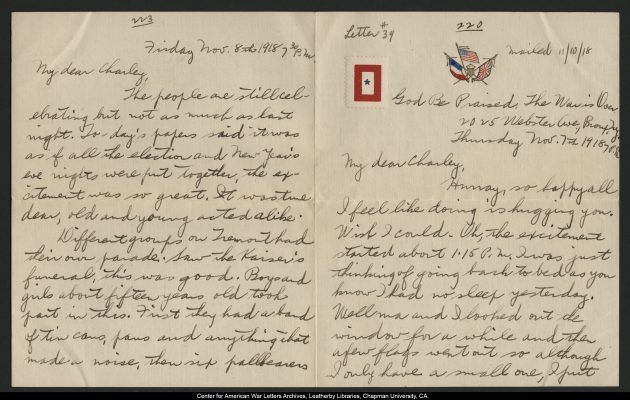 223
Friday Nov. 8th 1918 7 30 P.M.
My dear Charley,
The people are still cel-
ebrating but not as much as last
night. To-day's papers said it was
as if all the election and New Year's
eve nights were put together, the ex-
citement was so great. It was true
dear, old and young acted alike.
Different groups on Tremont had
their own parade. Saw the Kaiser's
funeral, this was good. Boys and
girls about fifteen years old took
part in this. First they had a band
of tin cans, pans and anything that
made a noise, then six pallbearers
Letter # 39
220
mailed 11/10/18
God Be Praised, The War is Over
2025 Webster Ave, Bronx, N.Y.
Thursday Nov. 7th 1918
My dear Charley,
Hurray, so happy all
I feel like doing is hugging you.
Wish I could. Oh, the excitement
started about 1.15 P.M. I was just
thinking of going back to bed as you
know I had no sleep yesterday.
Well ma and I looked out the
window for a while and then
a few flags went out so although
I only have a small one, I put
Center for American War Letters Archives, Leatherby Libraries, Chapman University, CA